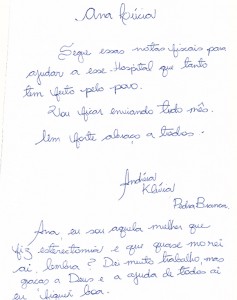 Ana Lúcia
Segue essas notas fiscais para
ajudar a esse Hospital que tanto
tem feito pelo povo.
Vou ficar enviando todo mês.
Um forte abraço a todos.
Andréia
Klívia
Pedra Branca
Ana, eu sou aquela mulher que
fiz esterectomia e que quase morri
aí, lembra? Dei muito trabalho, mas
graças a Deus e a ajuda de todos aí
eu fiquei boa.